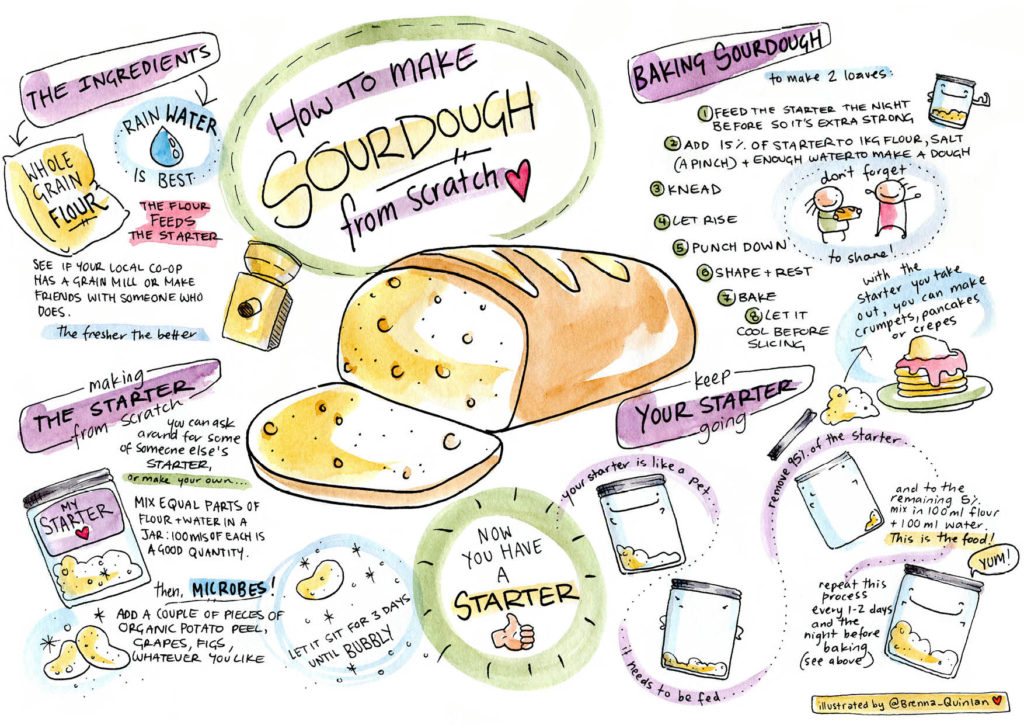 HOW TO MAKE
SOURDOUGH
from scratch
THE INGREDIENTS
WHOLE
GRAIN
FLOUR
RAIN WATER
IS BEST
THE FLOUR
FEEDS
THE STARTER
SEE IF YOUR LOCAL CO-OP
HAS A GRAIN MILL OR MAKE
FRIENDS WITH SOMEONE WHO
DOES.
the fresher the better
making
THE STARTER
from scratch
you can ask
around for some
of someone else's
STARTER,
or make your own...
MY
STARTER
MIX EQUAL PARTS OF
FLOUR + WATER IN A
JAR: 100MLS OF EACH IS
A GOOD QUANTITY.
then, MICROBES!
ADD A COUPLE OF PIECES OF
ORGANIC POTATO PEEL,
GRAPES, FIGS,
WHATEVER YOU LIKE
LET IT SIT FOR 3 DAYS
UNTIL BUBBLY
NOW
YOU HAVE
A
STARTER
BAKING SOURDOUGH
to make 2 loaves:
1 FEED THE STARTER THE NIGHT
BEFORE SO IT'S EXTRA STRONG
2 ADD 15% OF STARTER TO 1KG FLOUR, SALT
(A PINCH) + ENOUGH WATER TO MAKE A DOUGH
3 KNEAD
4 LET RISE
5 PUNCH DOWN
6 SHAPE + REST
7 BAKE
8 LET IT
COOL BEFORE
SLICING
don't forget
to share!
with the
starter you take
out, you can make
crumpets, pancakes
or crepes
keep
YOUR STARTER
going
your starter is like a pet
it needs to be fed...
remove 95% of the starter...
and to the
remaining 5%
mix in 100ml flour
+ 100 ml water.
This is the food!
YUM!
repeat this
process
every 1-2 days
and the
night before
baking
(see above)
illustrated by @Brenna_Quinlan